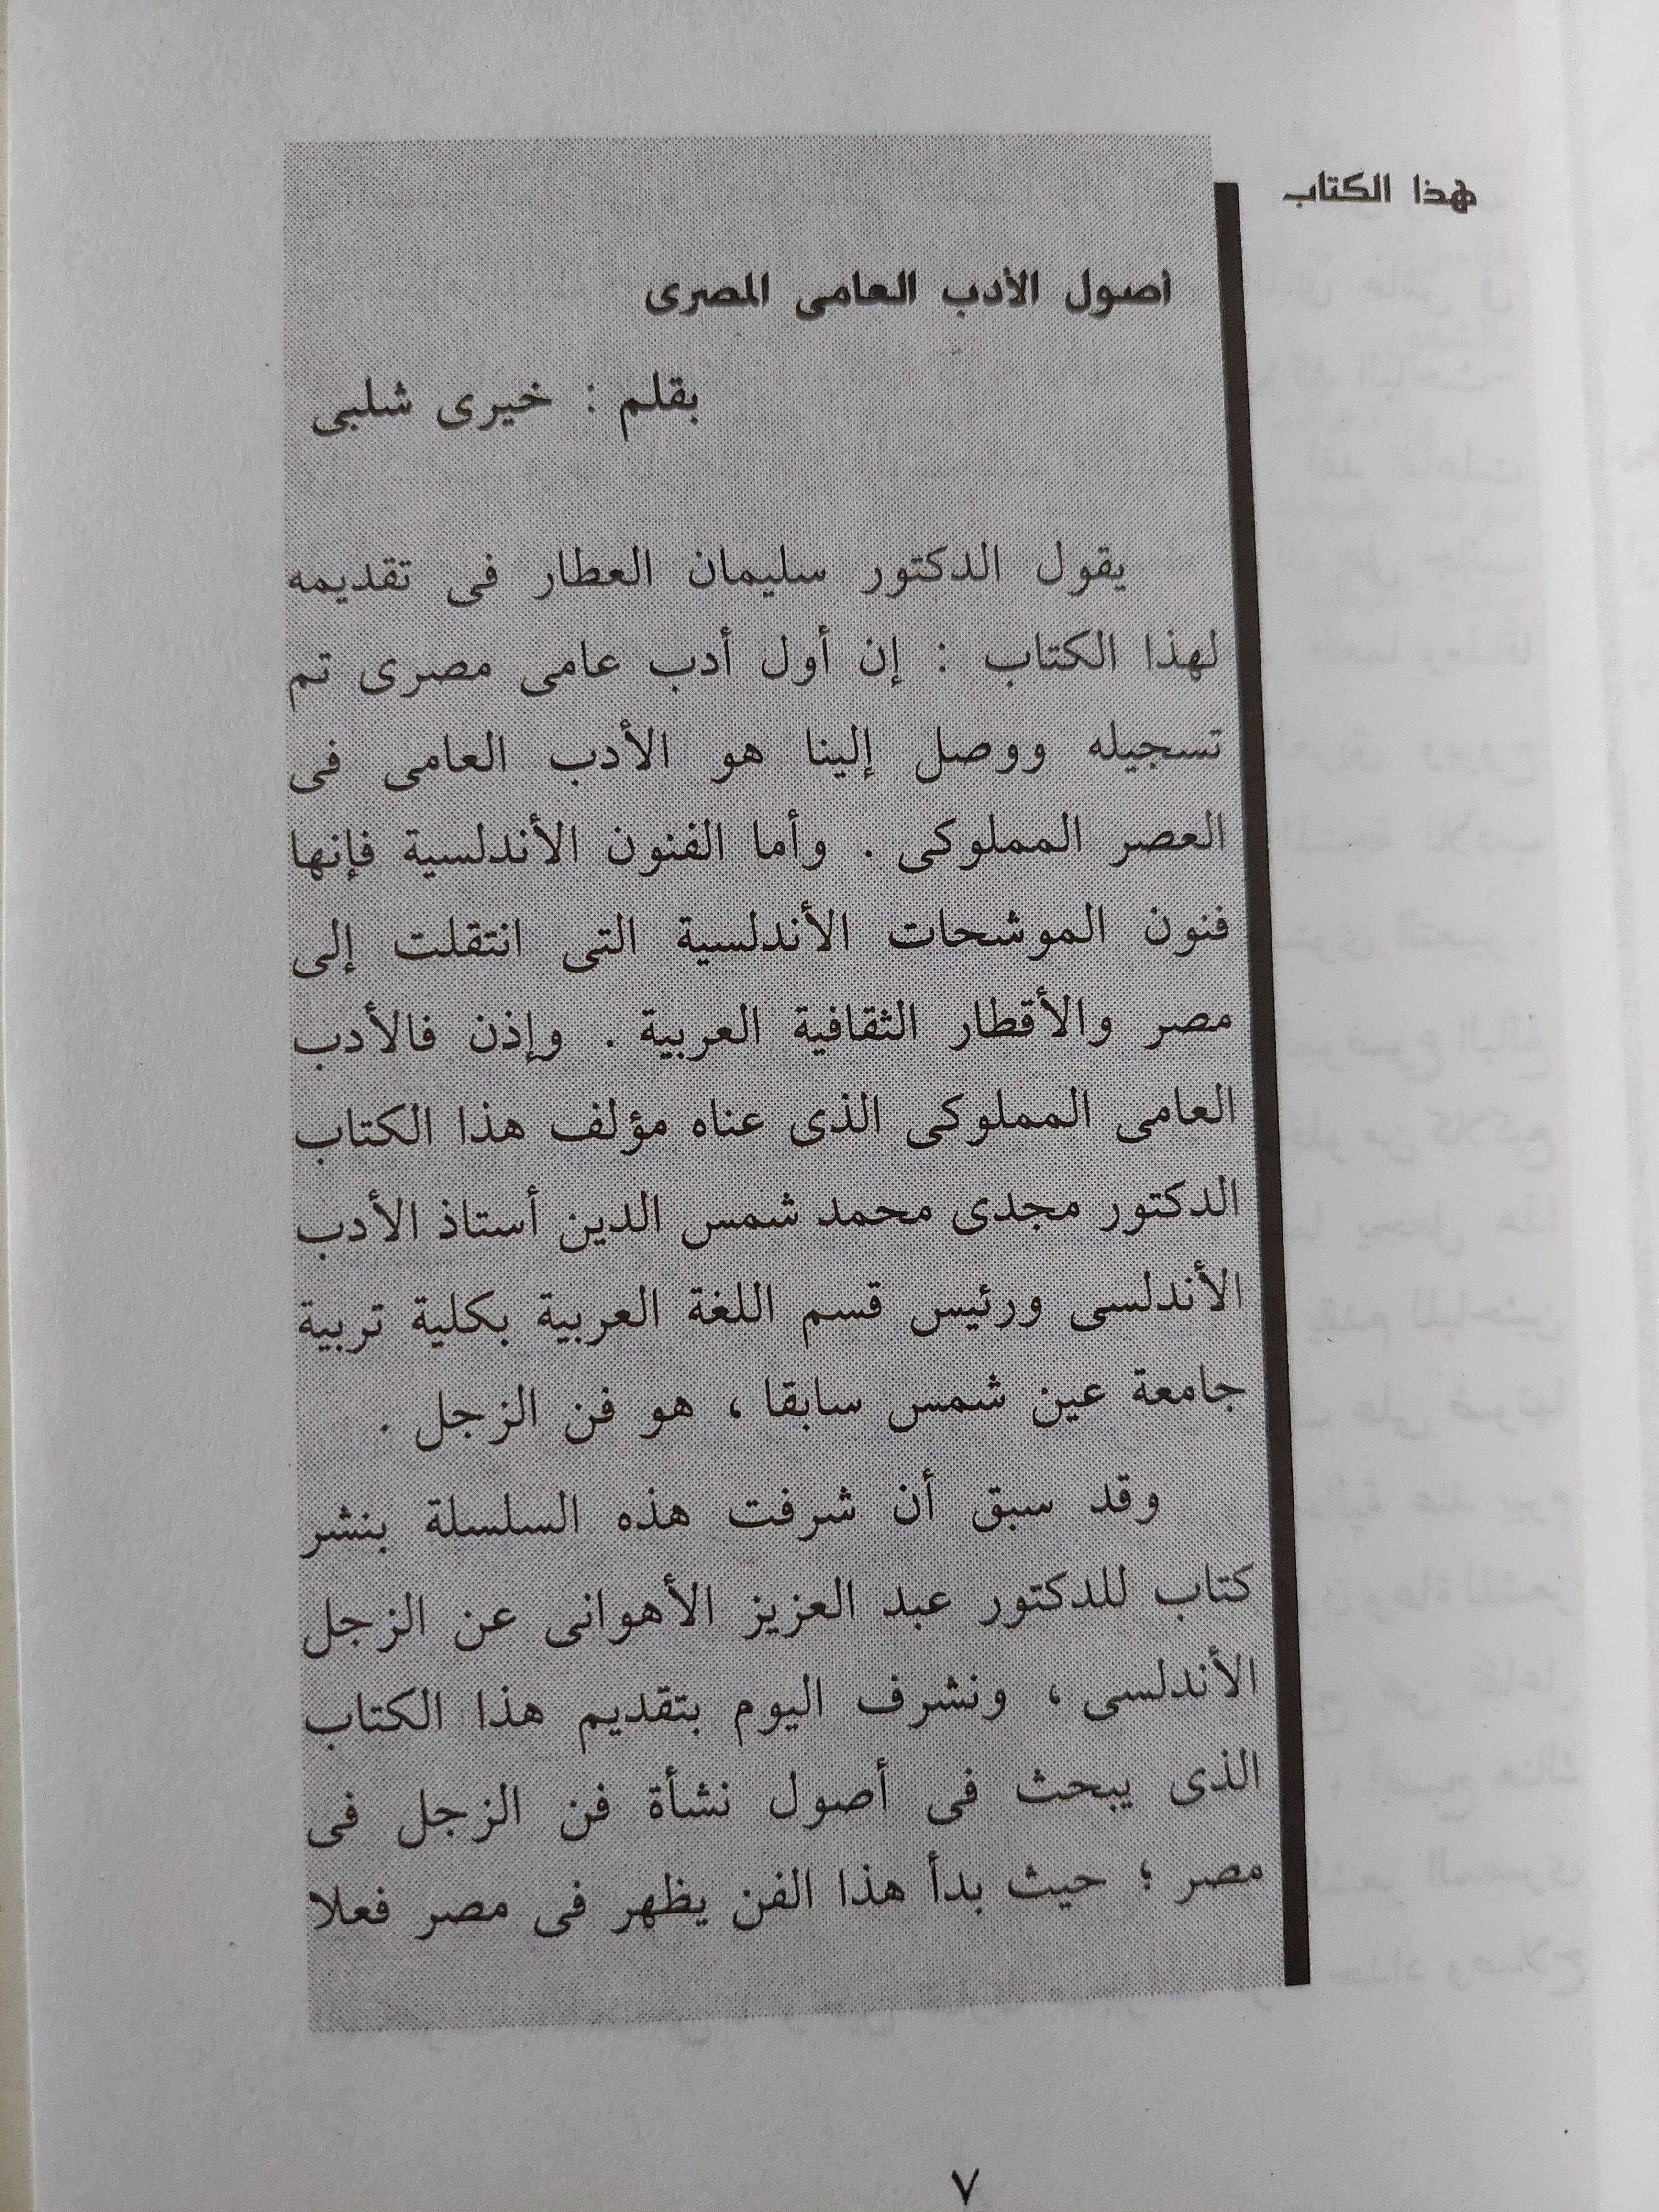 هذا الكتاب
أصول الأدب العامى المصرى
بقلم : خيرى شلبى
يقول الدكتور سليمان العطار فى تقديمه
لهذا الكتاب : إن أول أدب عامى مصرى تم
تسجيله ووصل إلينا هو الأدب العامى فى
العصر المملوكى . وأما الفنون الأندلسية فإنها
فنون الموشحات الأندلسية التى انتقلت إلى
مصر والأقطار الثقافية العربية . وإذن فالأدب
العامى المملوكى الذى عناه مؤلف هذا الكتاب
الدكتور مجدى محمد شمس الدين أستاذ الأدب
الأندلسى ورئيس قسم اللغة العربية بكلية تربية
جامعة عين شمس سابقا ، هو فن الزجل .
وقد سبق أن شرفت هذه السلسلة بنشر
كتاب للدكتور عبد العزيز الأهوانى عن الزجل
الأندلسى ، ونشرف اليوم بتقديم هذا الكتاب
الذى يبحث فى أصول نشأة فن الزجل فى
مصر ؛ حيث بدأ هذا الفن يظهر فى مصر فعلا
٧